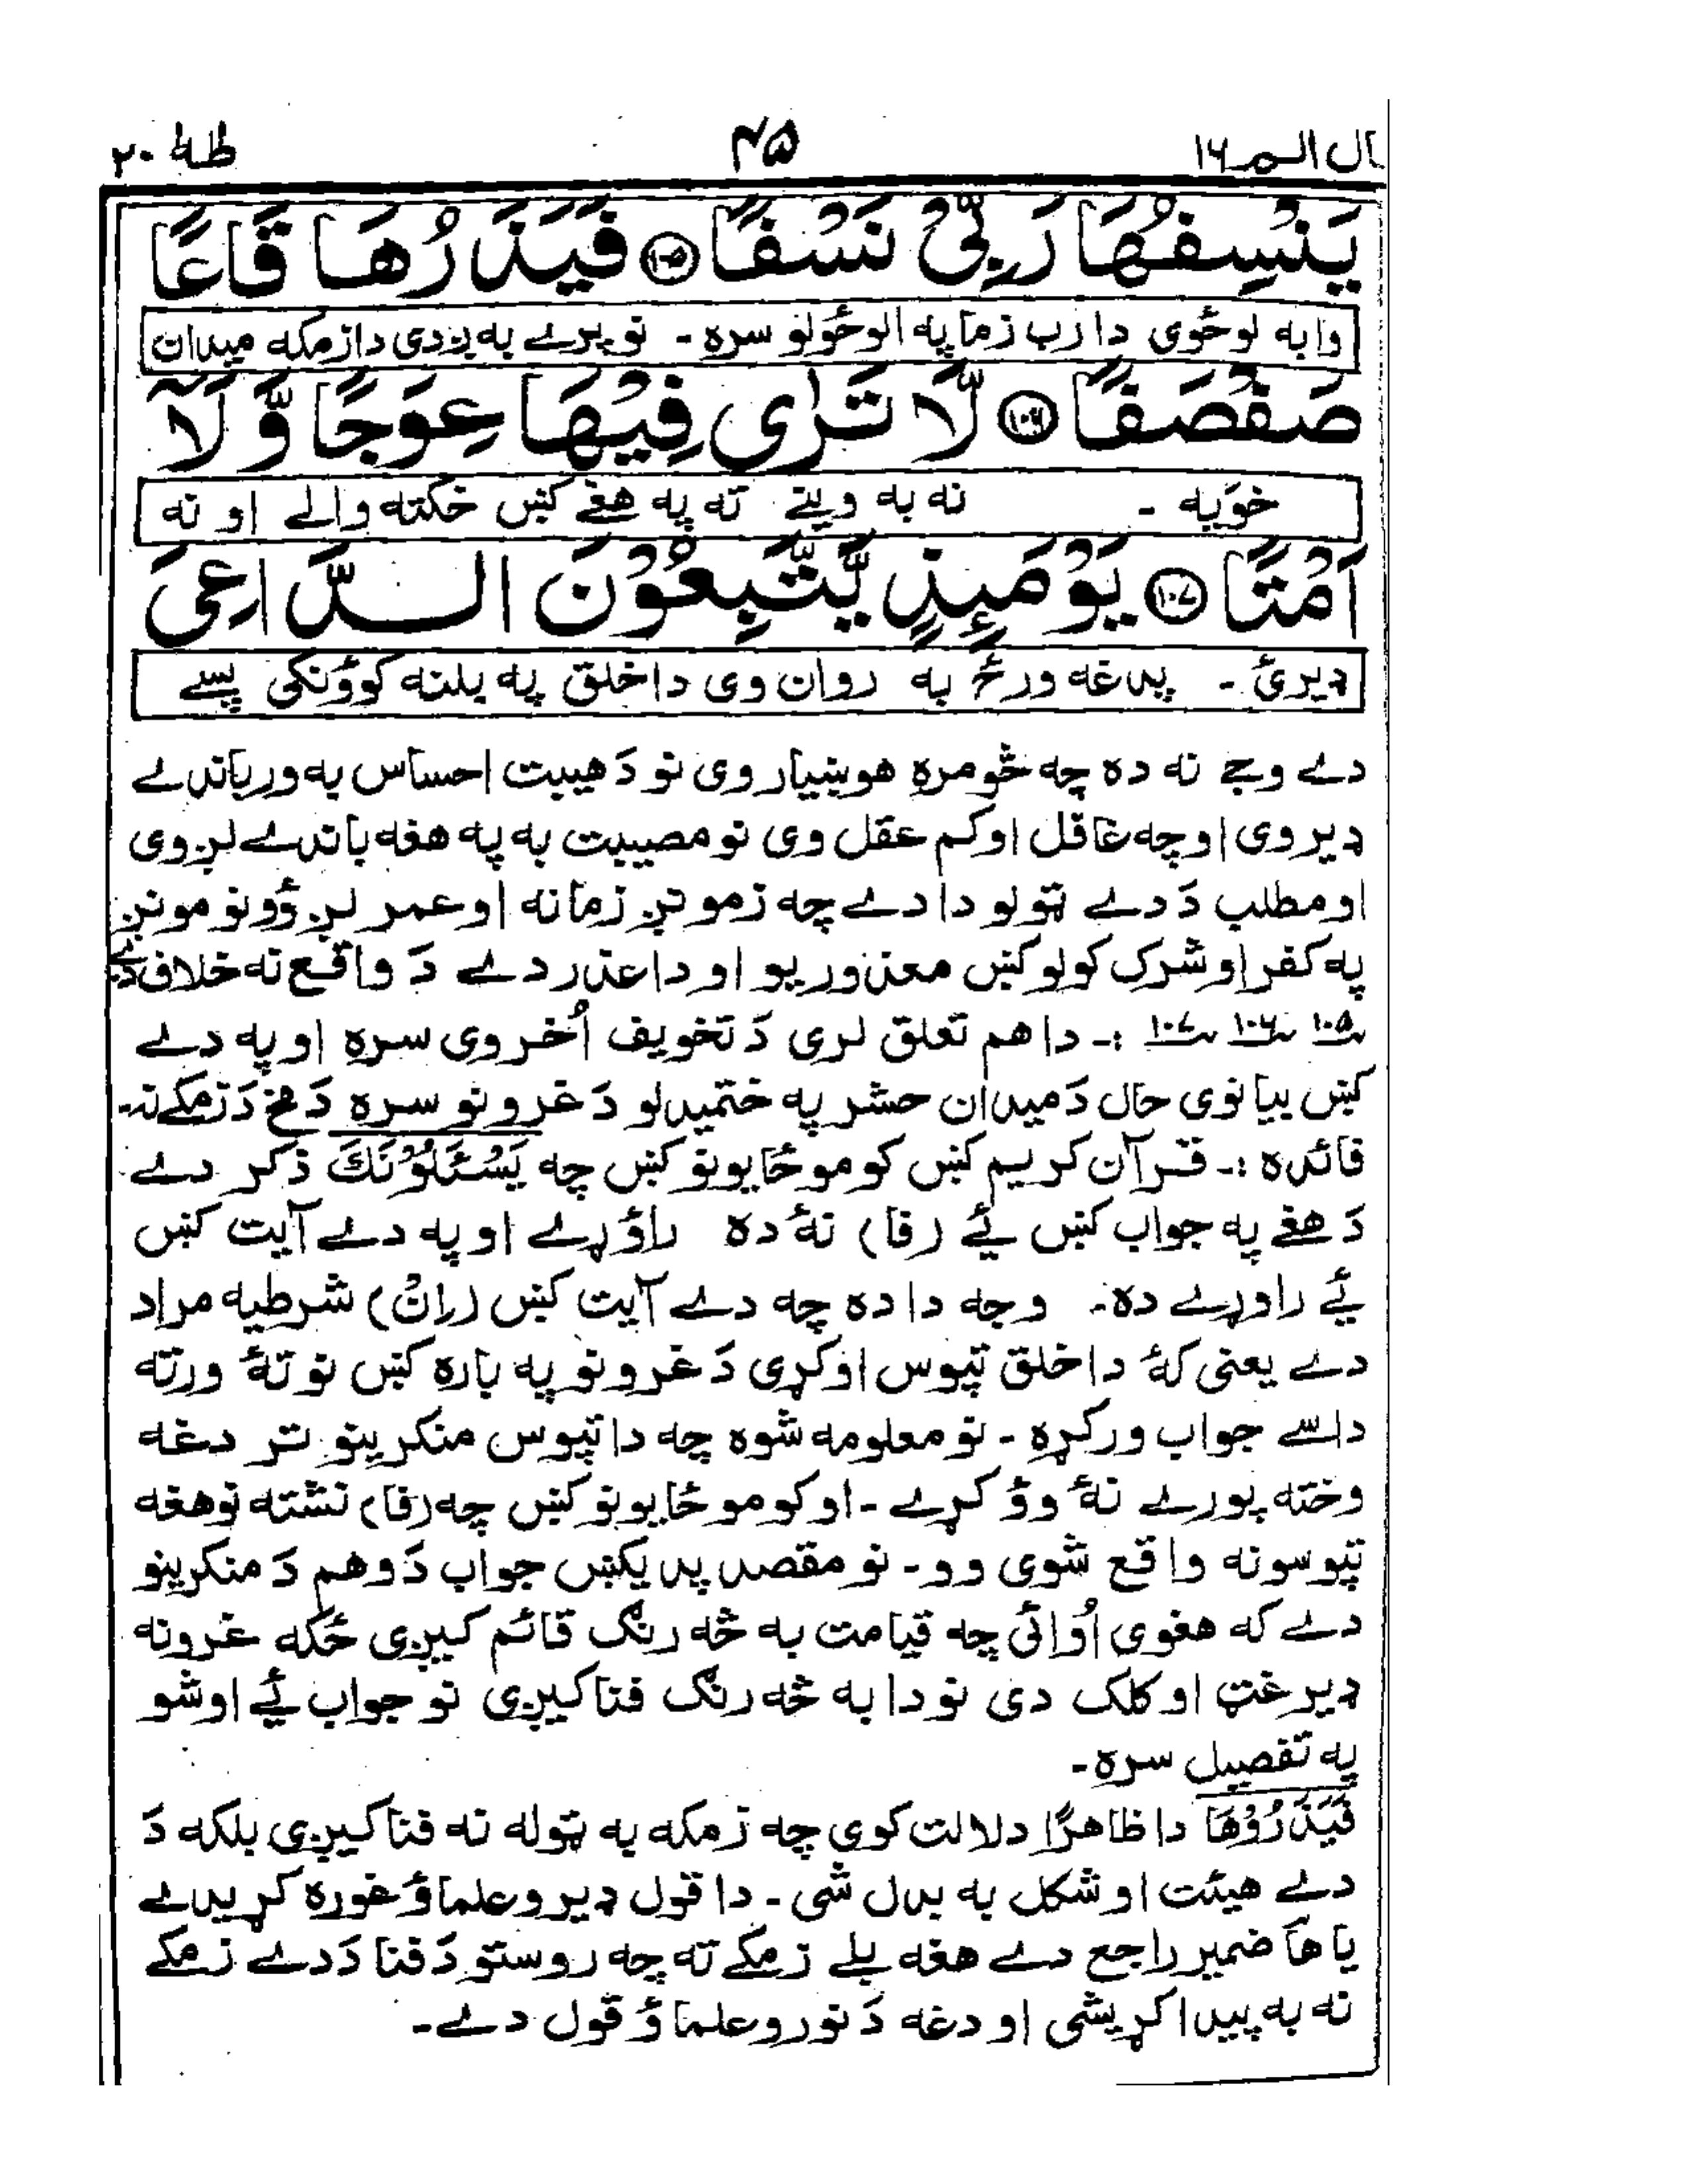 قال الم ١٦ ٤٥ طٰهٰ ٢٠
يَنْسِفُهَا رَبِّىْ نَسْفًا ١٠٥ فَيَذَرُهَا قَاعًا
وابه لوځوی دا رب زما په الوځولو سره - نو پرے به ږدی دا زمکه میدان
صَفْصَفًا ١٠٦ لَّا تَرٰى فِيْهَا عِوَجًا وَّلَآ
خوَیه - نه به وینے ته په هغے کښ خکته والے او نه
اَمْتًا ١٠٧ يَوْمَىِٕذٍ يَّتَّبِعُوْنَ الدَّاعِىَ
ډیرئ - پدغه ورځ به روان وی دا خلق په بلنه کوؤنکی پسے
دے وجے نه ده چه څومره هوښیار وی نو دَ هیبت احساس په ور باندے
ډیر وی او چه غافل او کم عقل وی نو مصیبت به په هغه باندے لږ وی
او مطلب دَ دے ټولو دا دے چه زمونږ زمانه او عمر لږ وؤ نو مونږ
په کفر او شرک کولو کښ معذور یو او دا عذر دے دَ واقع نه خلاف دے
١٠٥ ١٠٦ ١٠٧ :- دا هم تعلق لری دَ تخویف اُخروی سره او په دے
کښ بیانوی حال دَ میدان حشر په ختمیدلو دَ غرونو سره دَ مخ دَ زمکے نه۔
فائده :- قرآن کریم کښ کومو ځایونو کښ چه یَسْـَٔلُوْنَكَ ذکر دے
دَ هغے په جواب کښ ئے (فا) نهٔ ده راؤړے او په دے آیت کښ
ئے راوړے ده۔ وجه دا ده چه دے آیت کښ (اِنْ) شرطیه مراد
دے یعنی کهٔ دا خلق تپوس اوکړی دَ غرونو په باره کښ نو تهٔ ورته
داسے جواب ورکړه - نو معلومه شوه چه دا تپوس منکرینو تر دغه
وخته پورے نهٔ وؤ کړے - او کومو ځایونو کښ چه (فا) نشته نو هغه
تپوسونه واقع شوی وو - نو مقصد پدیکښ جواب دَ وهم دَ منکرینو
دے که هغوی اُوائی چه قیامت به څه رنگ قائم کیږی ځکه غرونه
ډیر غټ او کلک دی نو دا به څه رنگ فنا کیږی نو جواب ئے اوشو
په تفصیل سره -
فَیَذَرُوْهَا دا ظاهرًا دلالت کوی چه زمکه په ټوله نه فنا کیږی بلکه دَ
دے هیئت او شکل به بدل شی - دا قول ډیرو علماؤ غوره کړیدے
یا هَا ضمیر راجع دے هغه بلے زمکے ته چه روستو دَ فنا دَ دے زمکے
نه به پیدا کړیشی او دغه دَ نورو علماؤ قول دے -